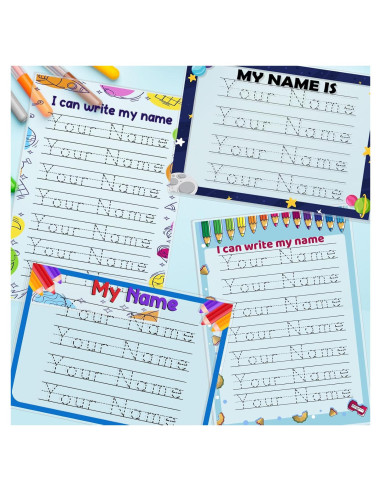 I can write my name
Your Name
Your Name
Your Name
Your Name
Your Name
Your Name
MY NAME IS
Your Name
Your Name
Your Name
Your Name
My Name
Your Name
Your Name
Your Name
Your Name
Your Name
I can write my name
Your Name
Your Name
Your Name
Your Name
Your Name
Your Name